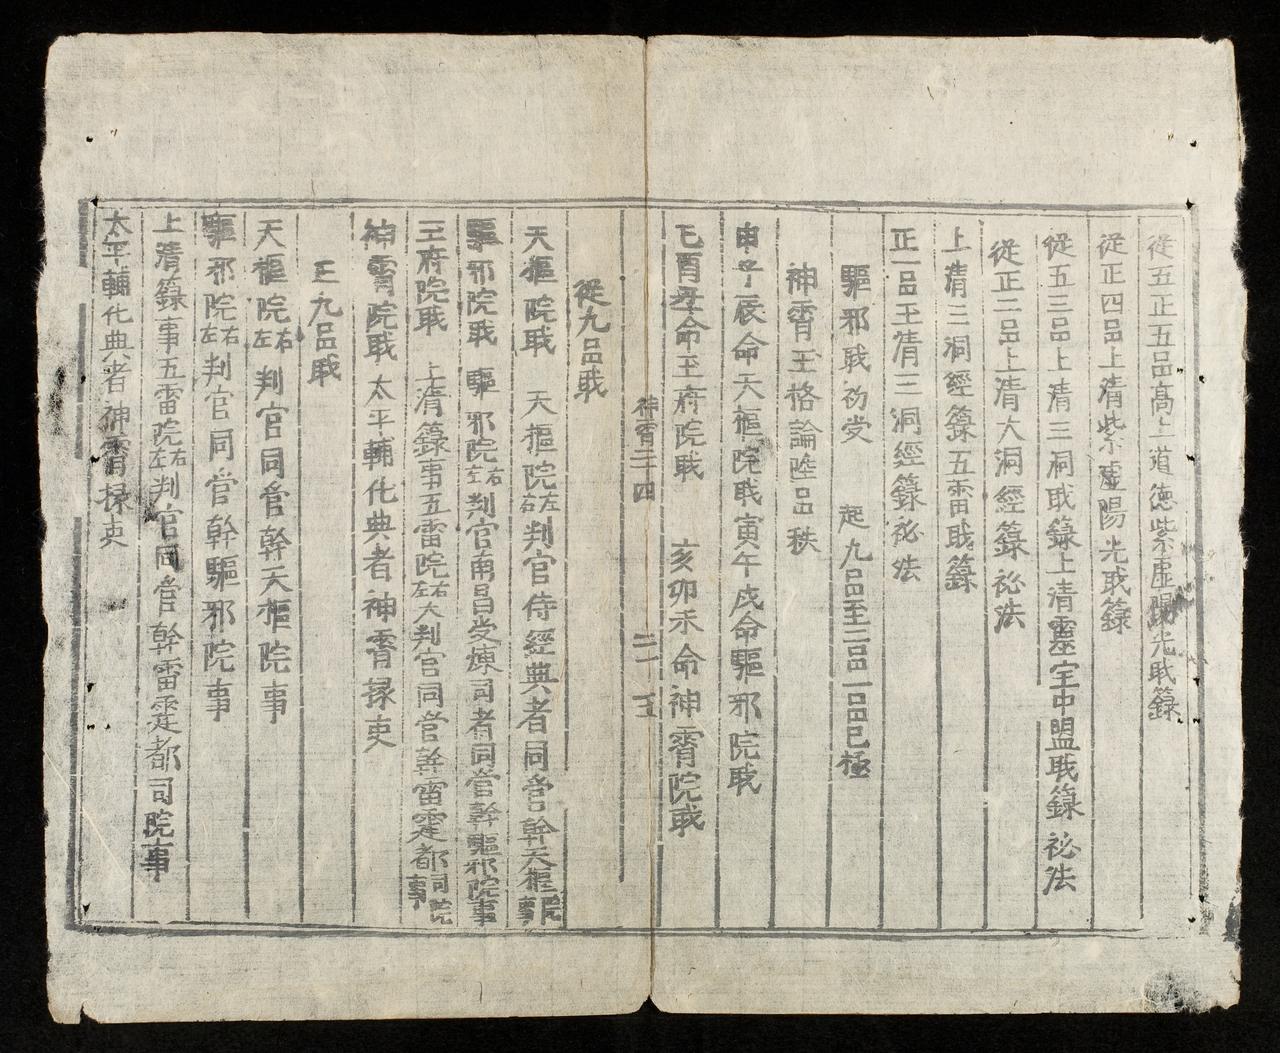 從五正五品高上道德紫虛陽光戢籙
從正四品上清紫虛陽光戢籙
從五三品上清三洞戢籙上清靈宝中盟戢籙祕法
從正二品上清大洞經籙祕法
上清三洞經籙五雷戢籙
正一品玉清三洞經籙祕法
驅邪戢初受 起九品至二品一品巳極
神霄玉格論陞品秩
申子辰命天樞院戢寅午戌命驅邪院戢
巳酉丑命玉府院戢 亥卯未命神霄院戢
神霄二十四 二十五
從九品戢
天樞院戢 天樞院左右判官侍經典者同管幹天樞院事
驅邪院戢 驅邪院右左判官南昌受煉司者同管幹驅邪院事
玉府院戢 上清籙事五雷院右左大判官同管幹雷霆都司院事
神霄院戢太平輔化典者神霄掾吏
正九品戢
天樞院右左判官同管幹天樞院事
驅邪院右左判官同管幹驅邪院事
上清籙事五雷院右左判官同管幹雷霆都司院事
太平輔化典者神霄掾吏